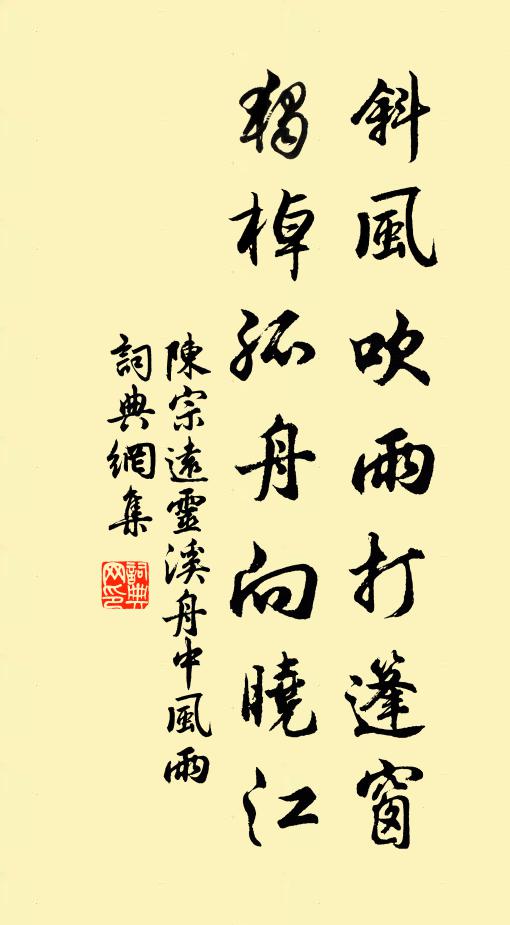 斜風吹雨打篷窗
獨棹孤舟向曉江
陳宗遠靈溪舟中風雨
詞典網集
詞典网印